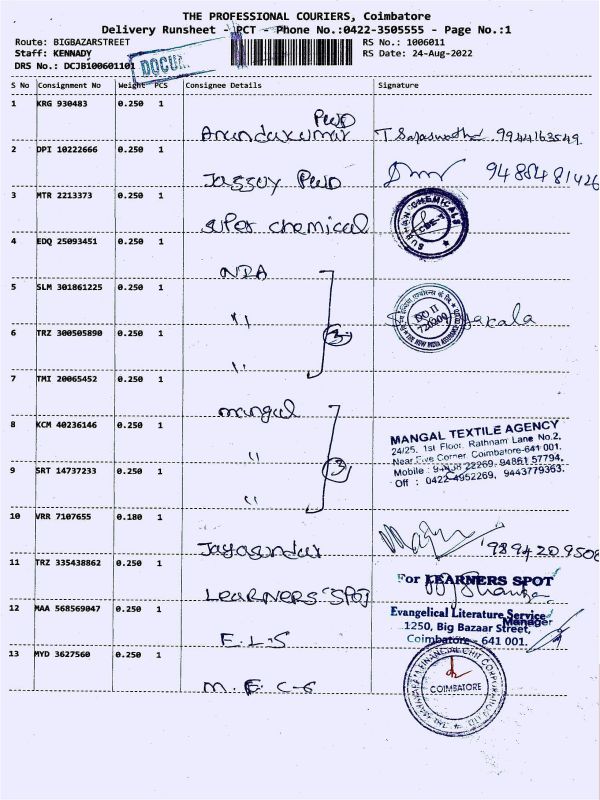 THE PROFESSIONAL COURIERS, Coimbatore
Delivery Runsheet - PCT - Phone No.:0422-3505555 - Page No.:1
Route: BIGBAZARSTREET RS No.: 1006011
Staff: KENNADY RS Date: 24-Aug-2022
DRS No.: DCJB100601101
DOCUM
S No Consignment No Weight PCS Consignee Details Signature
1 KRG 930483 0.250 1
PWD
Anandakumar 9944163549
2 DPI 10222666 0.250 1
Jassuy PWD 9485481426
3 MTR 2213373 0.250 1
super chemical
SUBHAN CHEMICALS CBE-1
4 EDQ 25093451 0.250 1
NIA
5 SLM 301861225 0.250 1
"
THE NEW INDIA ASSURANCE
DO II
720600
6 TRZ 300505890 0.250 1
3
"
7 TMI 20065452 0.250 1
mangal
8 KCM 40236146 0.250 1
MANGAL TEXTILE AGENCY
24/25, 1st Floor, Rathnam Lane No.2,
Near Five Corner, Coimbatore-641 001.
Mobile : 22269, 94861 57794,
Off : 0422-4952269, 9443779363.
"
9 SRT 14737233 0.250 1
3
"
10 VRR 7107655 0.180 1
Jayasundar 9894209508
11 TRZ 335438862 0.250 1
LEARNERS SPOT
For LEARNERS SPOT
Manager
12 MAA 568569047 0.250 1
E.L.S
Evangelical Literature Service
1250, Big Bazaar Street,
Coimbatore - 641 001.
13 MYD 3627560 0.250 1
M.F.C-S
FINANCIAL CHIT CORPORATION
COIMBATORE